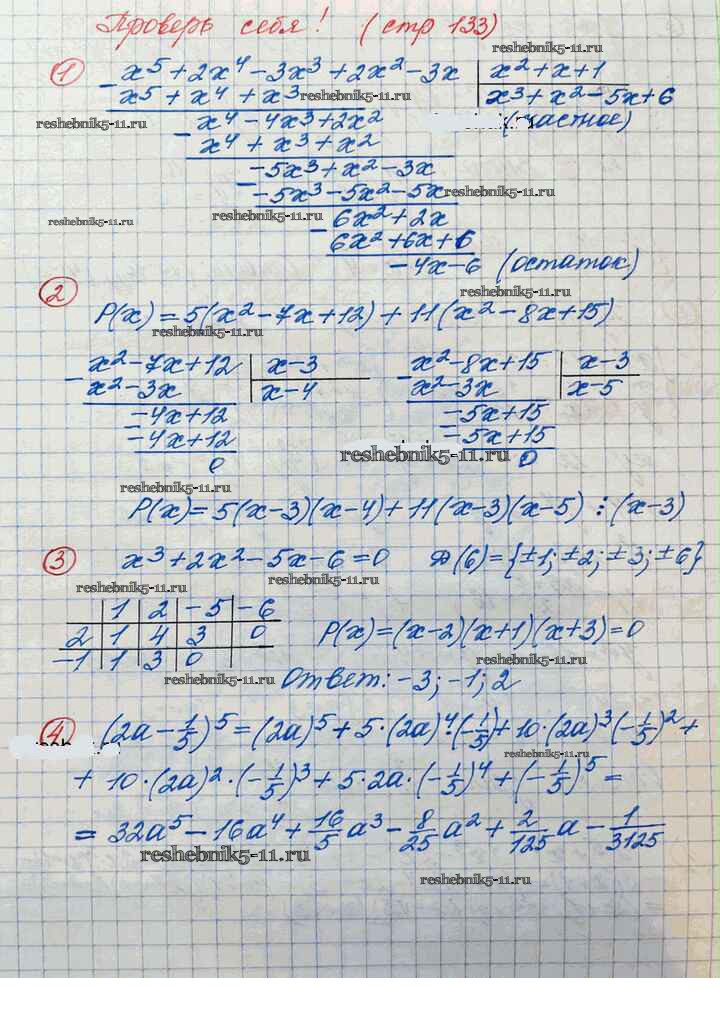 Проверь себя! (стр 133)
① x⁵ + 2x⁴ - 3x³ + 2x² - 3x | x² + x + 1
- x⁵ + x⁴ + x³ | x³ + x² - 5x + 6
reshebnik5-11.ru
reshebnik5-11.ru
reshebnik5-11.ru
x⁴ - 4x³ + 2x² (частное)
- x⁴ + x³ + x²
-5x³ + x² - 3x
- -5x³ - 5x² - 5x
reshebnik5-11.ru
reshebnik5-11.ru
reshebnik5-11.ru
6x² + 2x
- 6x² + 6x + 6
-4x - 6 (остаток)
② reshebnik5-11.ru
P(x) = 5(x² - 7x + 12) + 11(x² - 8x + 15)
reshebnik5-11.ru
x² - 7x + 12 | x - 3
- x² - 3x | x - 4
-4x + 12
- -4x + 12
0
x² - 8x + 15 | x - 3
- x² - 3x | x - 5
-5x + 15
- -5x + 15
0
reshebnik5-11.ru
reshebnik5-11.ru
P(x) = 5(x - 3)(x - 4) + 11(x - 3)(x - 5) ⋮ (x - 3)
③ x³ + 2x² - 5x - 6 = 0 Д(6) = {±1; ±2; ±3; ±6}
reshebnik5-11.ru
reshebnik5-11.ru
| 1 | 2 | -5 | -6
2 | 1 | 4 | 3 | 0
-1 | 1 | 3 | 0 |
P(x) = (x - 2)(x + 1)(x + 3) = 0
reshebnik5-11.ru
reshebnik5-11.ru
Ответ: -3; -1; 2
④ (2a - 1/5)⁵ = (2a)⁵ + 5·(2a)⁴·(-1/5) + 10·(2a)³(-1/5)² +
reshebnik5-11.ru
+ 10·(2a)²·(-1/5)³ + 5·2a·(-1/5)⁴ + (-1/5)⁵ =
= 32a⁵ - 16a⁴ + 16/5 a³ - 8/25 a² + 2/125 a - 1/3125
reshebnik5-11.ru
reshebnik5-11.ru